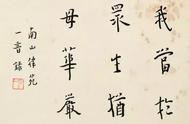 我當於
眾生猶
母華嚴
南山律苑
一音錄